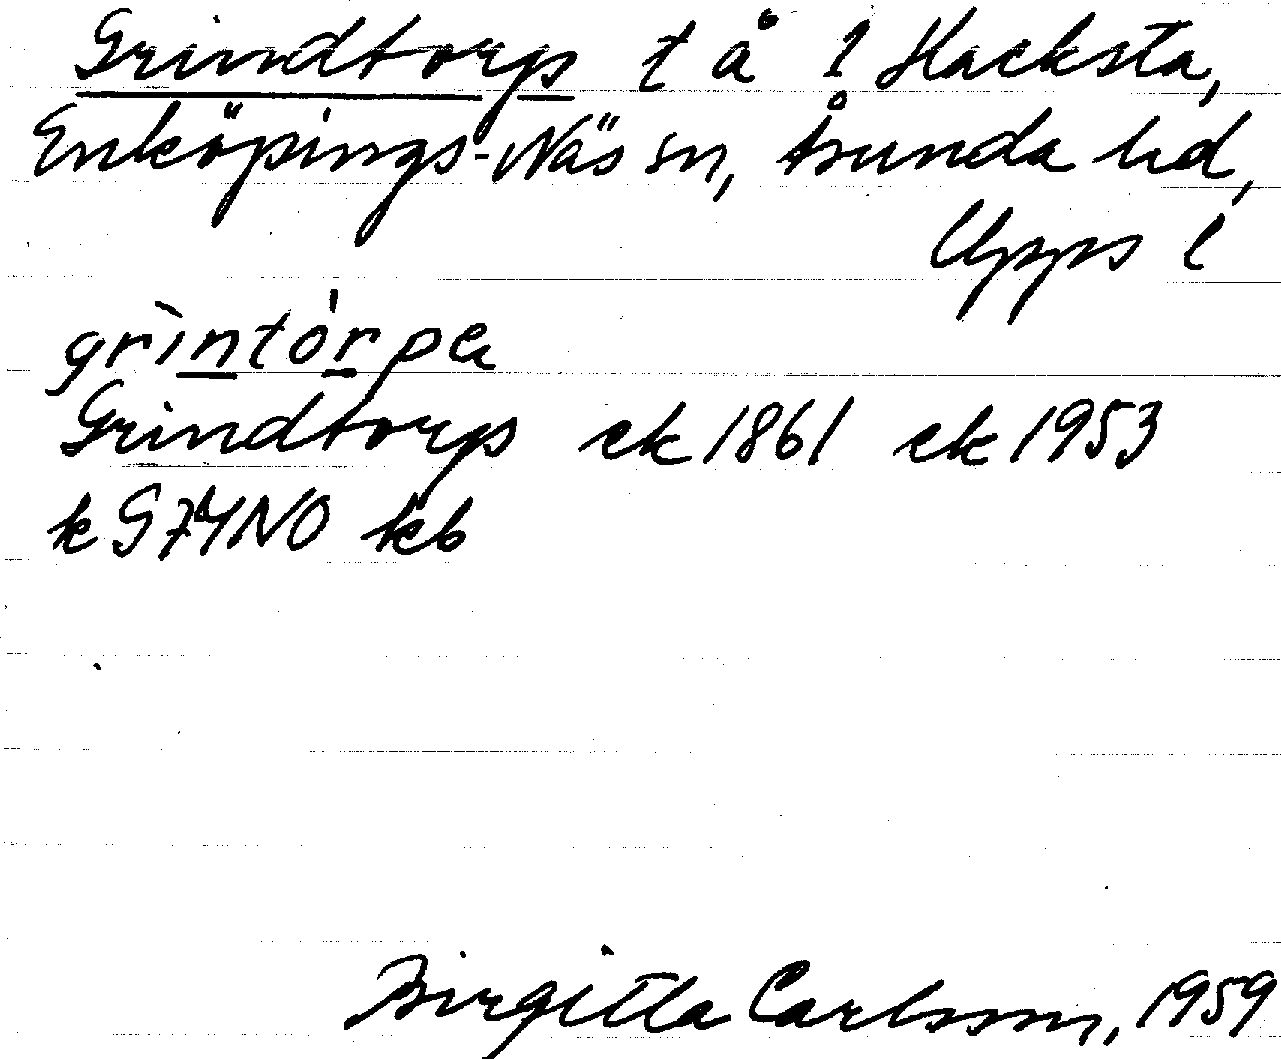 Grindtorp t å 1 Hacksta,
Enköpings-Näs sn, trunda hd,
Upps l
grìntórpa
Grindtorp ek 1861 ek 1953
k G74NO kb
Birgitta Carlsson, 1959